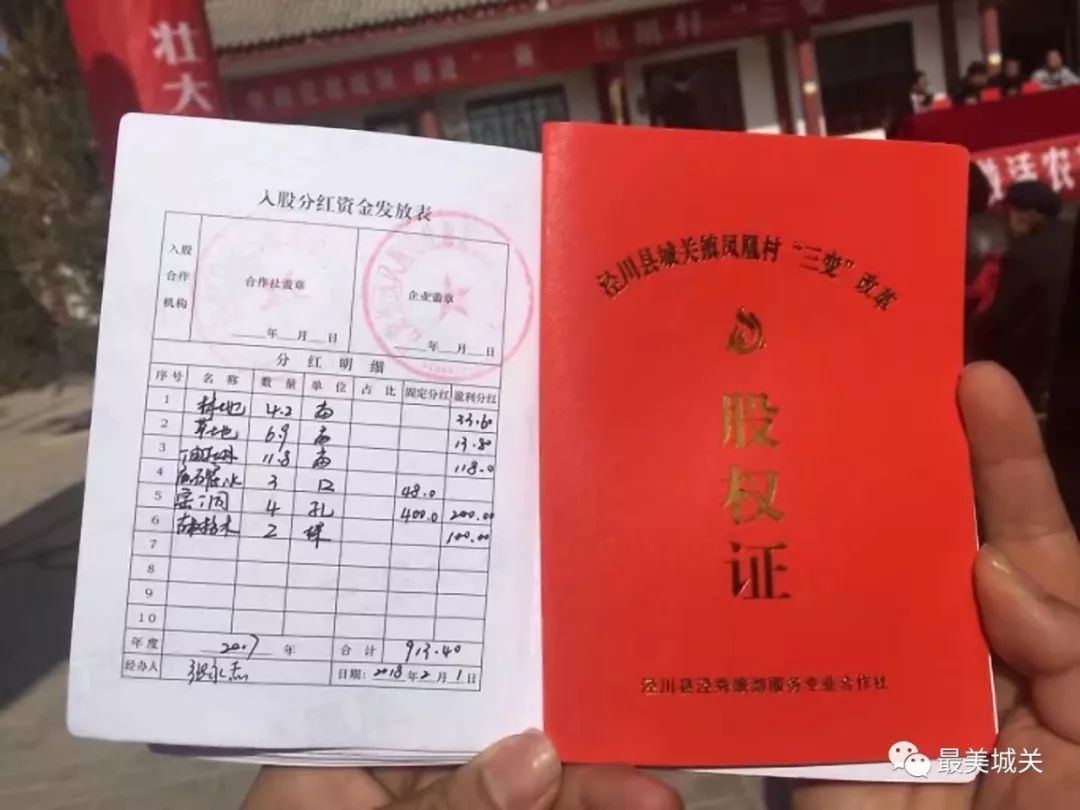 壮大
凤凰村"三变
激活农
入股分红资金发放表
入股
合作
机构
合作社盖章
年 月 日
企业盖章
年 月 日
分红明细
序号 名称 数量 单位 占比 固定分红 盈利分红
1 林地 4.2 亩 33.60
2 草地 6.9 亩 13.80
3 11.8 亩 118.0
4 3 口 48.0
5 窑洞 4 孔 400.0 200.00
6 2 棵 100.00
7
8
9
10
年度 2017 年 合计 913.40
经办人 张永杰 日期：2018年2月1日
泾川县城关镇凤凰村"三变"改革
股权证
泾川县泾尧旅游服务专业合作社
最美城关